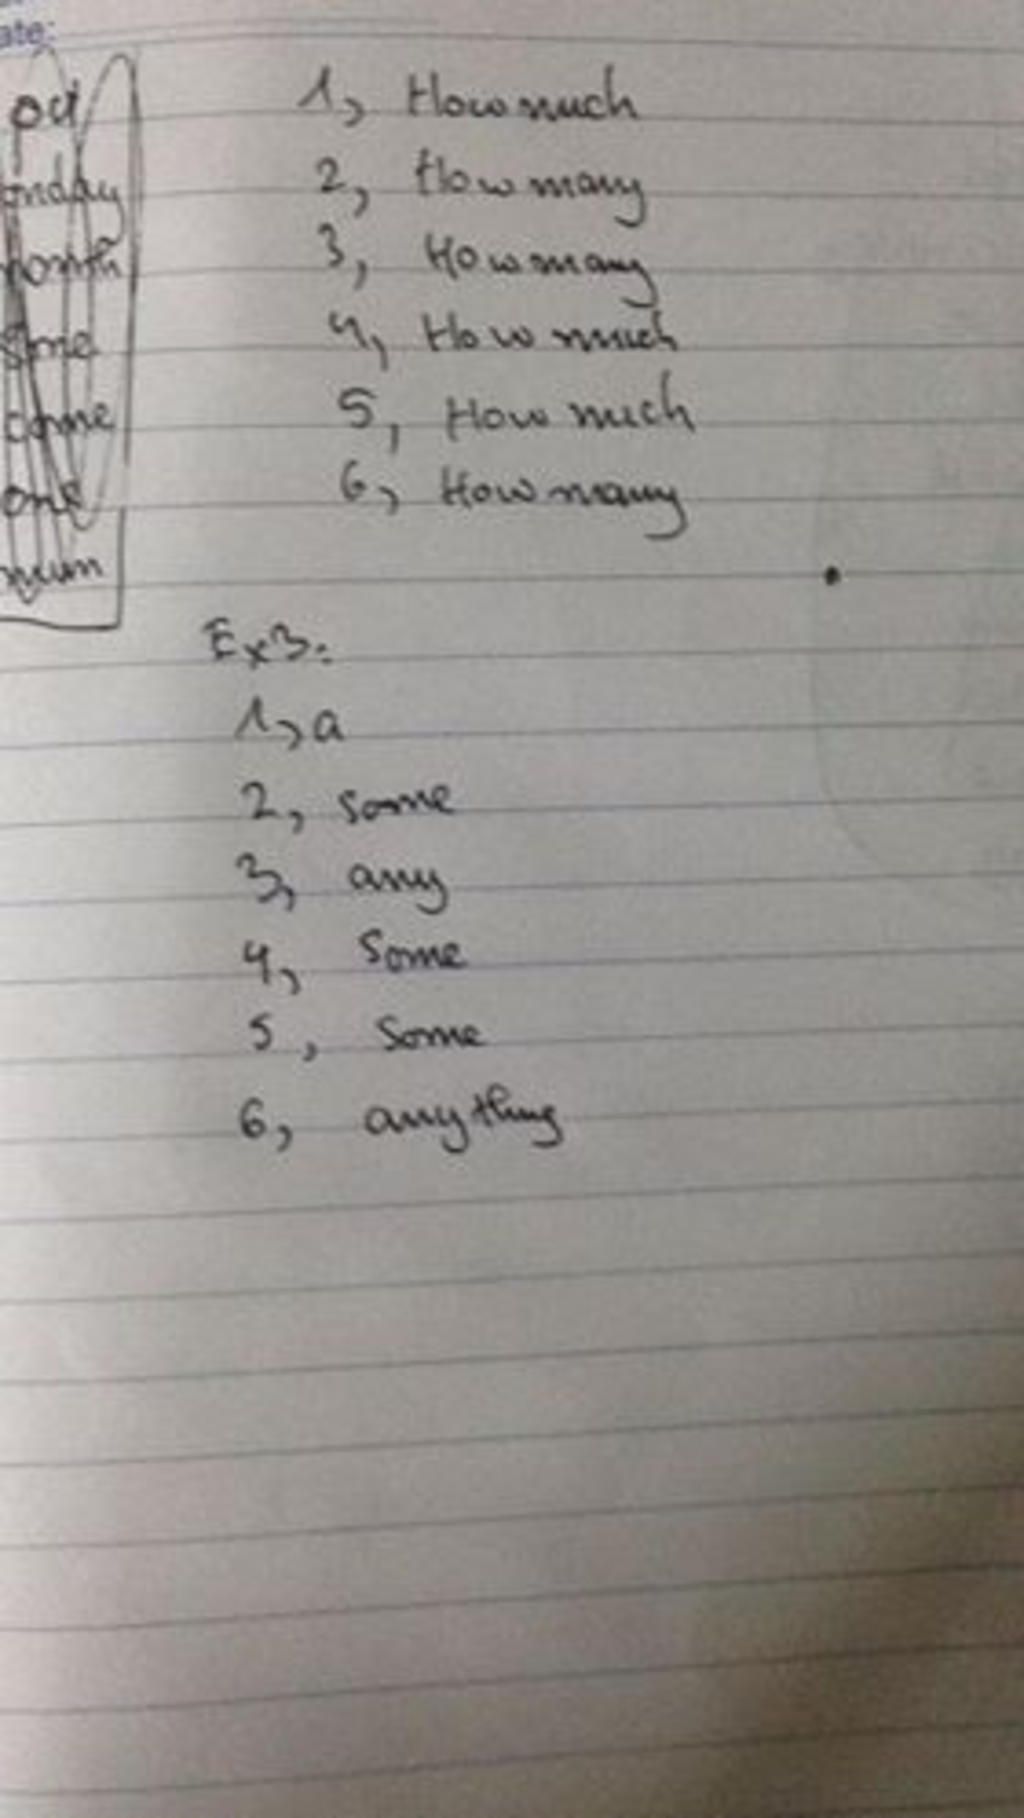 ate:
1, How much
2, How many
3, How many
4, How much
5, How much
6, How many
onday
come
one
Ex3:
1, a
2, some
3, any
4, Some
5, Some
6, anything